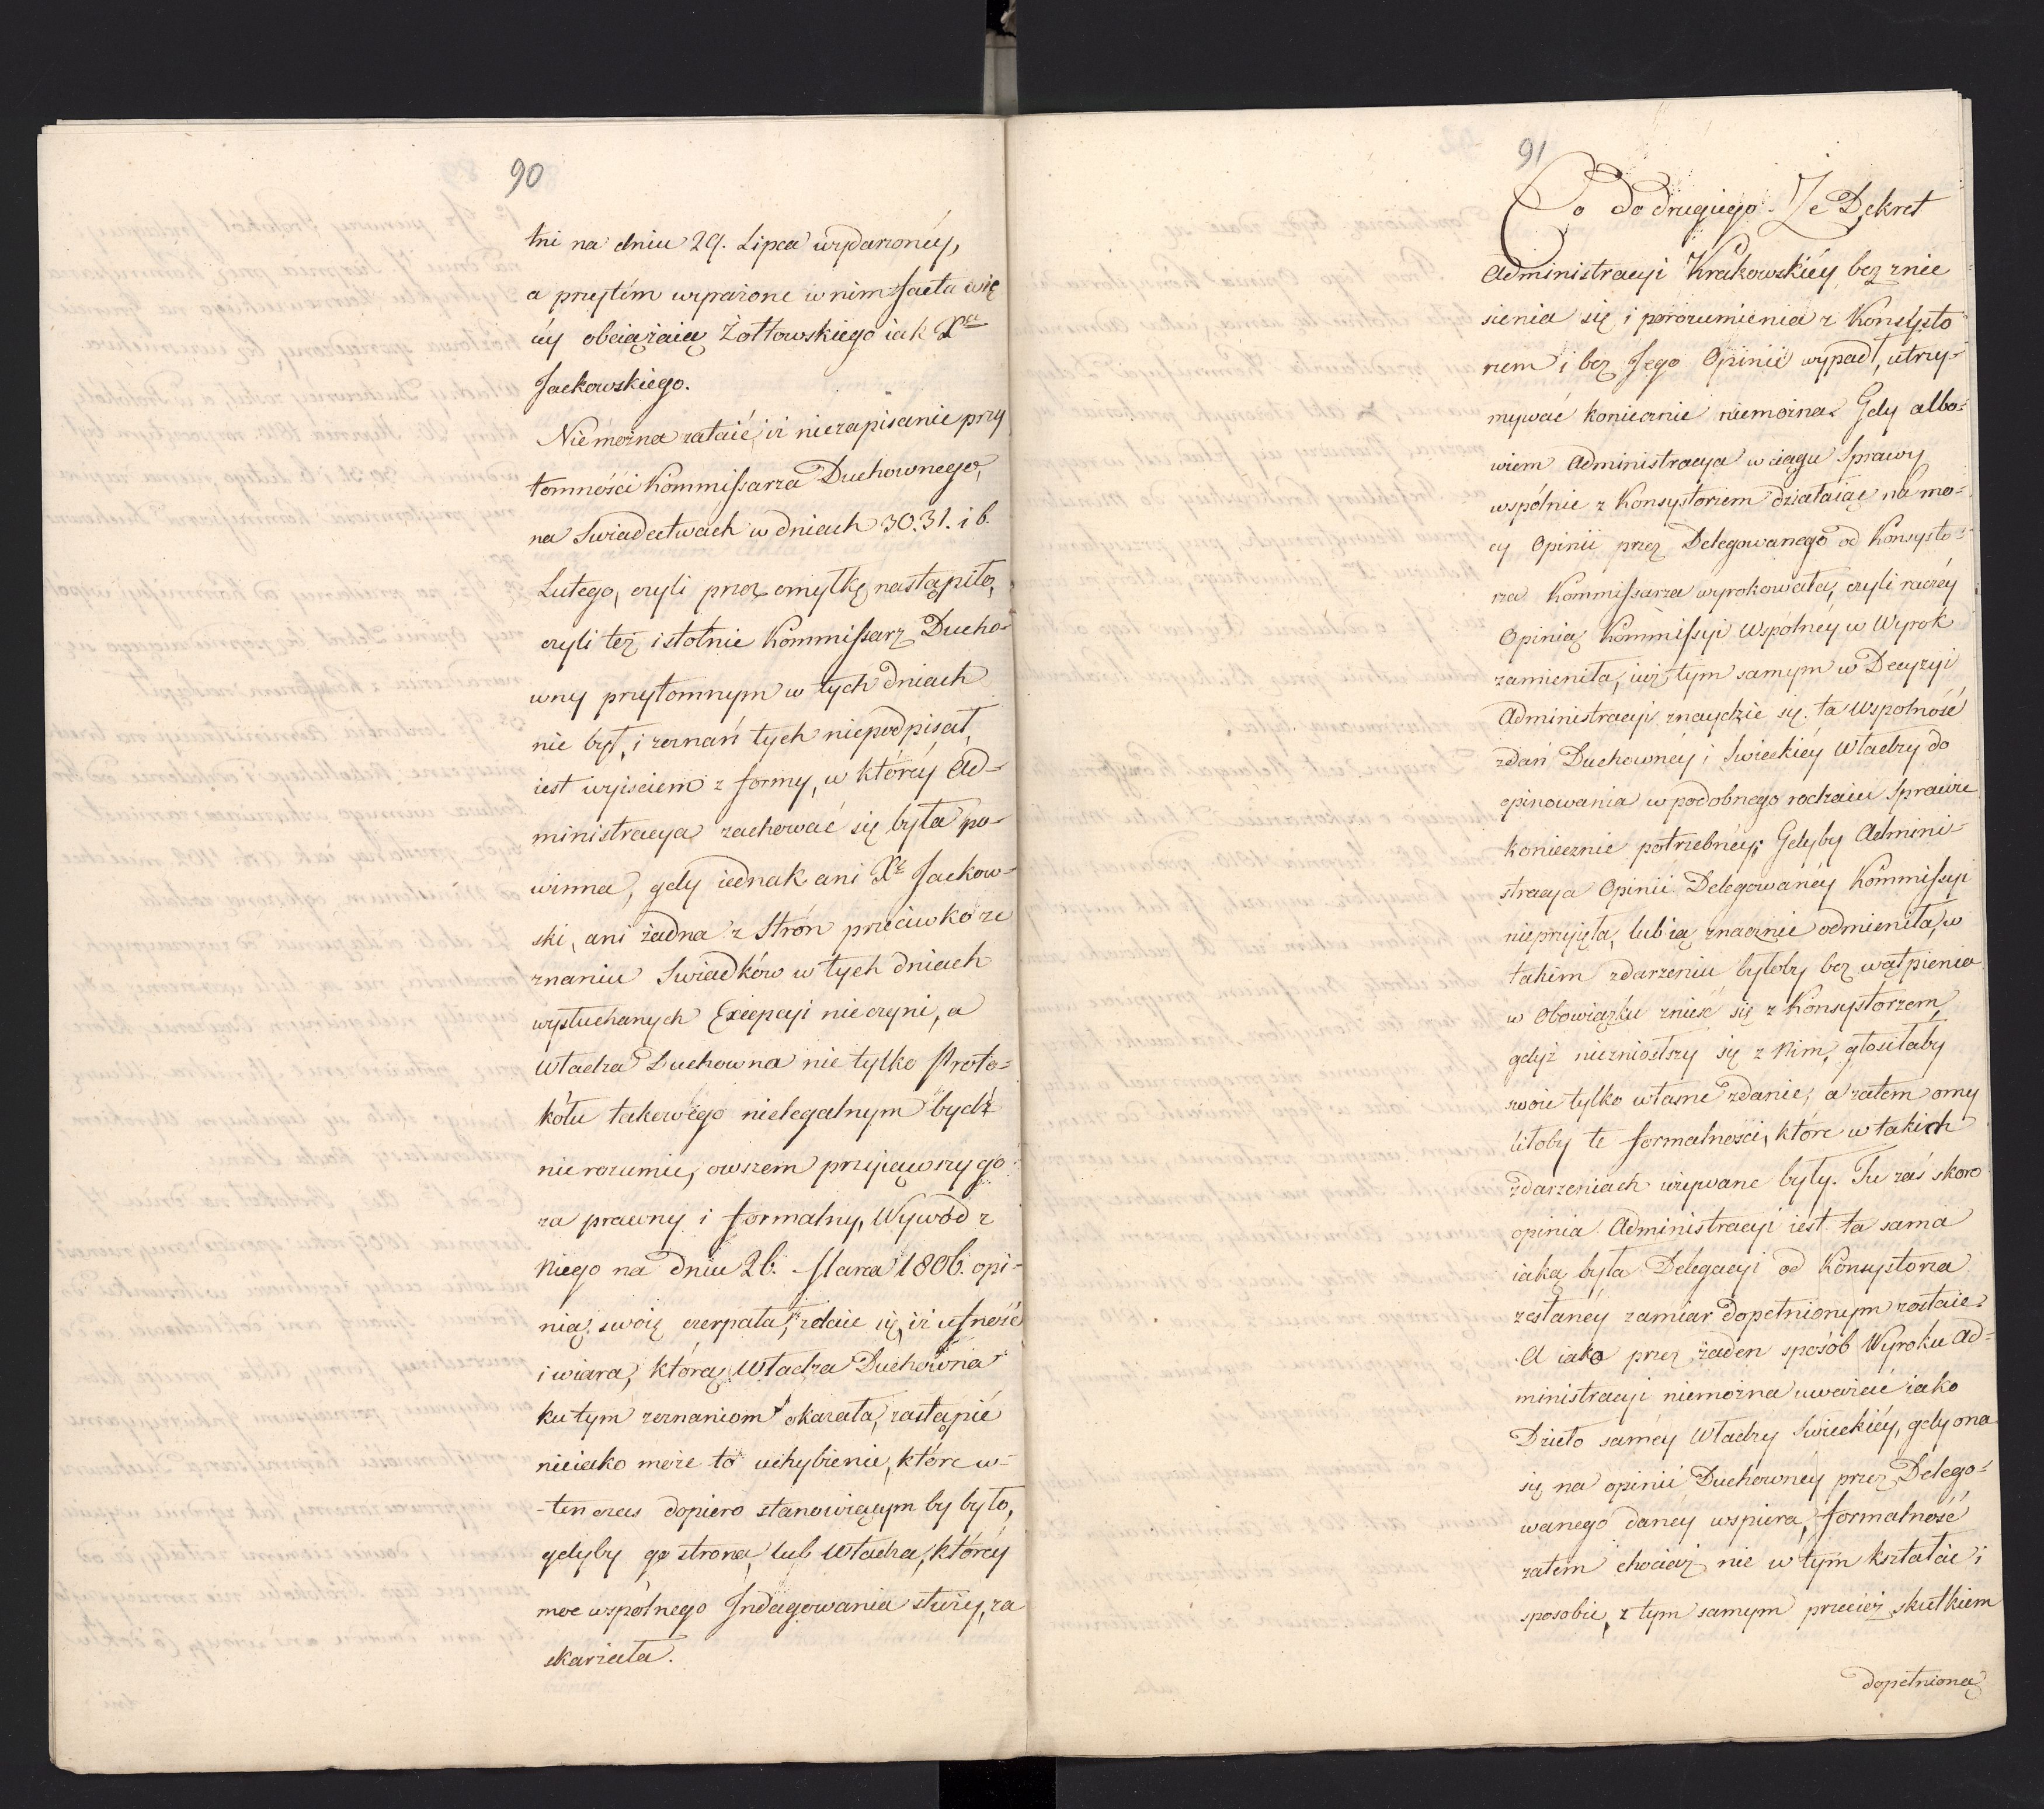 90
tni na dniu 29. Lipca wydarzonéy,
a przytém wyrażone w nim Facta wię
céy obciążaią Żołtowskiego iak Xa
Jackowskiego.
Niemożna zataić, iż niezapisanie przy
tomności Kommissarza Duchownego,
na Swiadectwach w dniach 30. 31. i 6.
Lutego, czyli przez omyłkę nastąpiło,
czyli też istotnie Kommissarz Ducho-
wny przytomnym w tych dniach
nie był, i zeznań tych niepodpisał,
iest wyiściem z formy, w któréy Ad-
ministracya zachować się była po-
winna, gdy iednak ani Xe Jackow-
ski, ani żadna z Strón przeciwko ze
znaniu Swiadków w tych dniach
wysłuchanych Excepcyi nieczyni, a
Władza Duchowna nie tylko Proto-
kółu takowego nielegalnym bydź
nie rozumie, owszem przyiąwszy go
za prawny i formalny, Wywód z
Niego na dniu 26. Marca 1806. opi-
nią swoię czerpała, zdaie się, iż ufność
i wiara, którą Władza Duchowna
ku tym zeznaniom okazała, zastąpić
nieiako może to uchybienie, które w-
-ten czas dopiero stanowiącym by było,
gdyby go strona, lub Władza, któréy
moc wspólnego Indagowania służy, za
skarżała.
91
Co do drugiego. Że Dekret
Administracyi Krakowskiéy bez znie
sienia się i porozumienia z Konsysto
rzem i bez Jego Opinii wypadł, utrzy-
mywać koniecznie niemożna. Gdy albo-
wiem Administracya w ciągu Sprawy
wspólnie z Konsystorzem działaiąc na mo-
cy Opinii przez Delegowanego od Konsysto-
rza Kommissarza wyrokowała, czyli raczéy
Opinią Kommissyi Wspólnéy w Wyrok
zamieniła, iuż tym samym w Decyzyi
Administracyi znaydzie się ta Wspolność
zdań Duchownéy i Swieckiéy Władzy do
opinowania w podobnego rodzaiu Sprawie
koniecznie potrzebnéy; Gdyby Admini-
stracya Opinii Delegowanéy Kommissyi
nieprzyięła, lub ią znacznie odmieniła, w
takim zdarzeniu byłoby bez wątpienia
w Obowiązku znieść się z Konsystorzem,
gdyż niezniosłszy się z Nim, głosiłaby
swoie tylko własne zdanie; a zatem omy
liłoby te formalności, które w takich
zdarzeniach używane były. Tu zaś skoro
opinia Administracyi iest ta sama
iaką była Delegacyi od Konsystorza
zesłanéy zamiar dopełnionym zostaie.
A iako przez żaden sposób Wyroku Ad-
ministracyi niemożna uważać iako
Dzieło saméy Władzy Swieckiéy, gdy ona
się na opinii Duchownéy przez Delego-
wanego danéy wspiera, formalność
zatem chociaż nie w tym kształcie i
sposobie, z tym samym przecież skutkiem
dopełniona